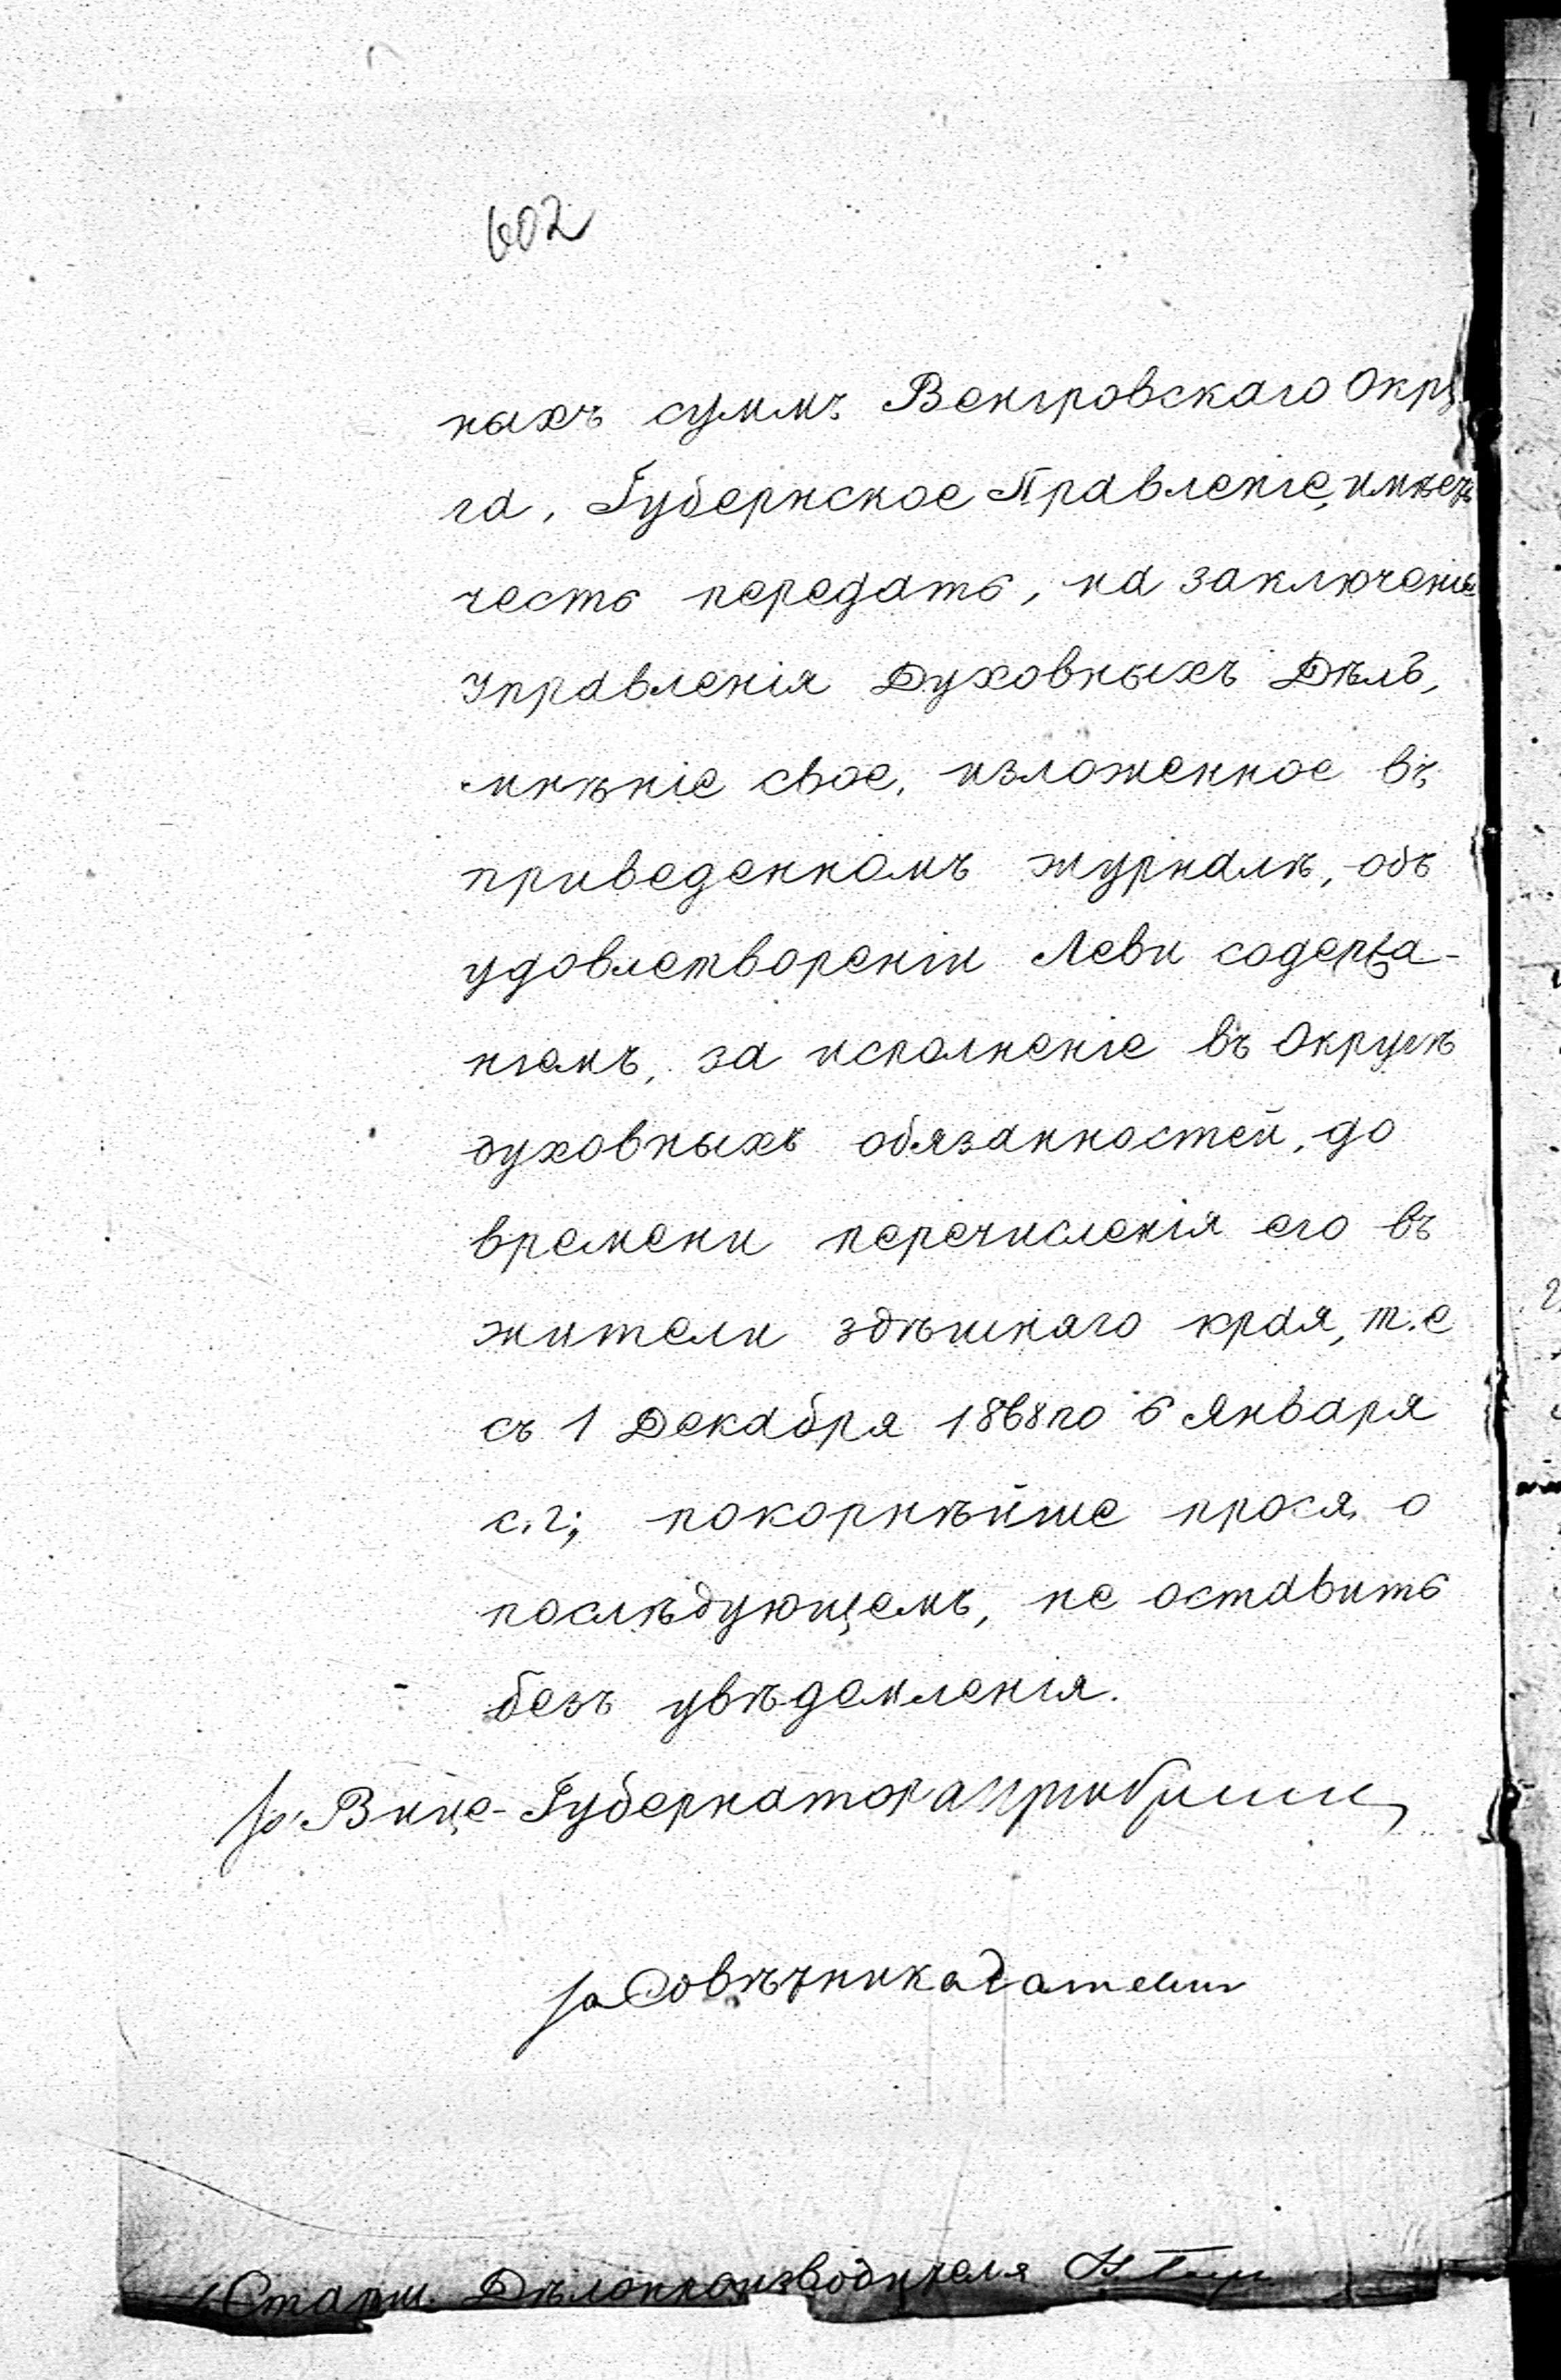 602
ныхъ суммъ Венгровскаго Окру
га, Губернское Правленіе, имѣетъ
честь передать, на заключеніе
Управленія Духовныхъ Дѣлъ,
мнѣніе свое, изложенное въ
приведенномъ журналѣ, объ
удовлетвореніи Леви содержа-
ніемъ, за исполненіе въ Округѣ
духовныхъ обязанностей, до
времени перечисленія его въ
жители здѣшняго края, т.е
съ 1 Декабря 1868 по 6 Января
с.г; покорнѣйше прося о
послѣдующемъ, не оставить
безъ увѣдомленія.
за Вице-Губернатора
за Совѣтника
Старш. Дѣлопроизводителя